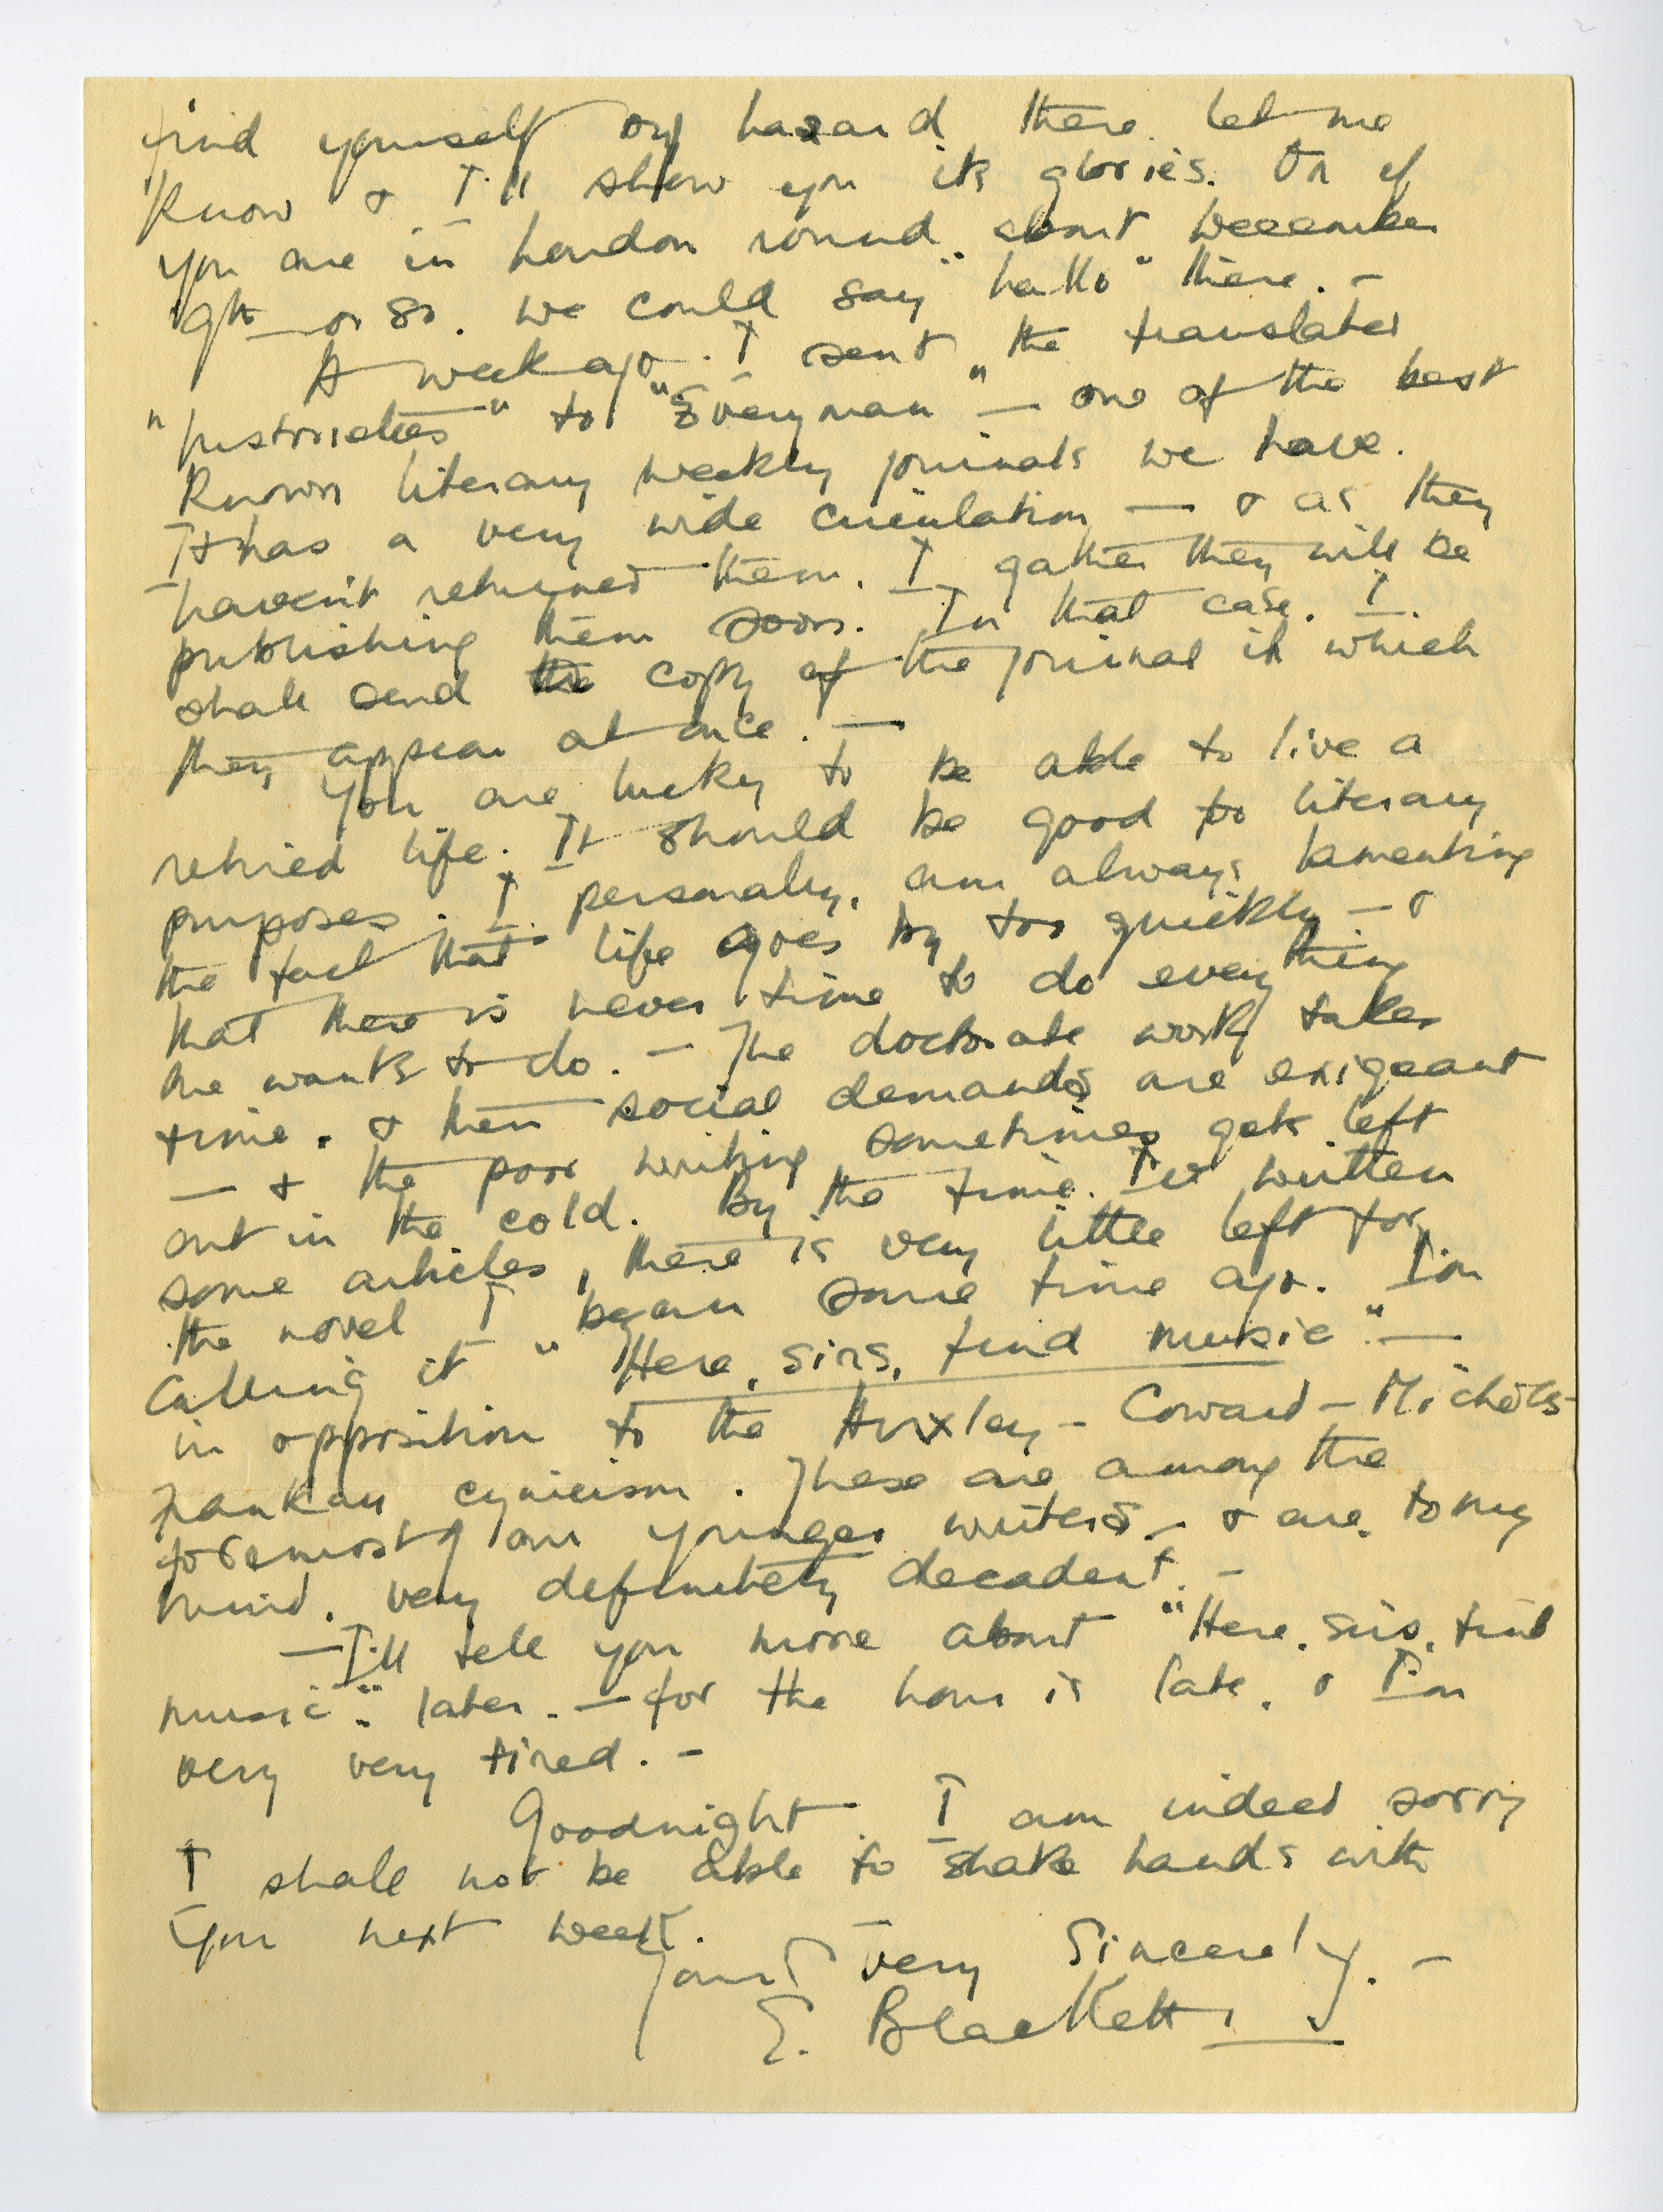 find yourself by hazard there. let me
know & I'll show you its glories. Or if
you are in London round about December
9th or so. we could say "hallo" there. –
A week ago. I sent the translated
"Historiettes" to "Everyman" – one of the best
known literary weekly journals we have.
It has a very wide circulation – & as they
haven't returned them. I gather they will be
publishing them soon. In that case. I
shall send the copy of the journal in which
they appear at once. –
You are lucky to be able to live a
retired life. It should be good for literary
purposes. I personally, am always lamenting
the fact that life goes by too quickly – &
that there is never time to do everything
one wants to do. – The doctorate work takes
time. & then social demands are exigeant
– & the poor writing sometimes gets left
out in the cold. By the time. I've written
some articles, there is very little left for
the novel I began some time ago. I'm
calling it "Here, sirs, find music" –
in opposition to the Huxley – Coward – Nichols –
Frankau cynicism. These are among the
foremost of our younger writers – & are. to my
mind. very definitely decadent. –
– I'll tell you more about "Here. sirs. find
music". later. – for the hour is late. & I'm
very very tired. –
Goodnight. I am indeed sorry
I shall not be able to shake hands with
you next week.
Yours very sincerely. –
E. Blackett.